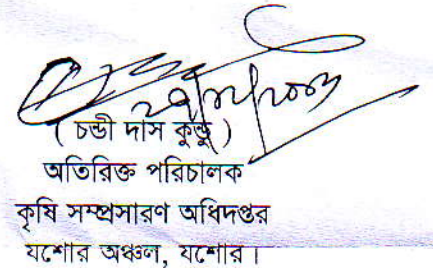 ( চন্ডী দাস কুন্ডু )
অতিরিক্ত পরিচালক
কৃষি সম্প্রসারণ অধিদপ্তর
যশোর অঞ্চল, যশোর।